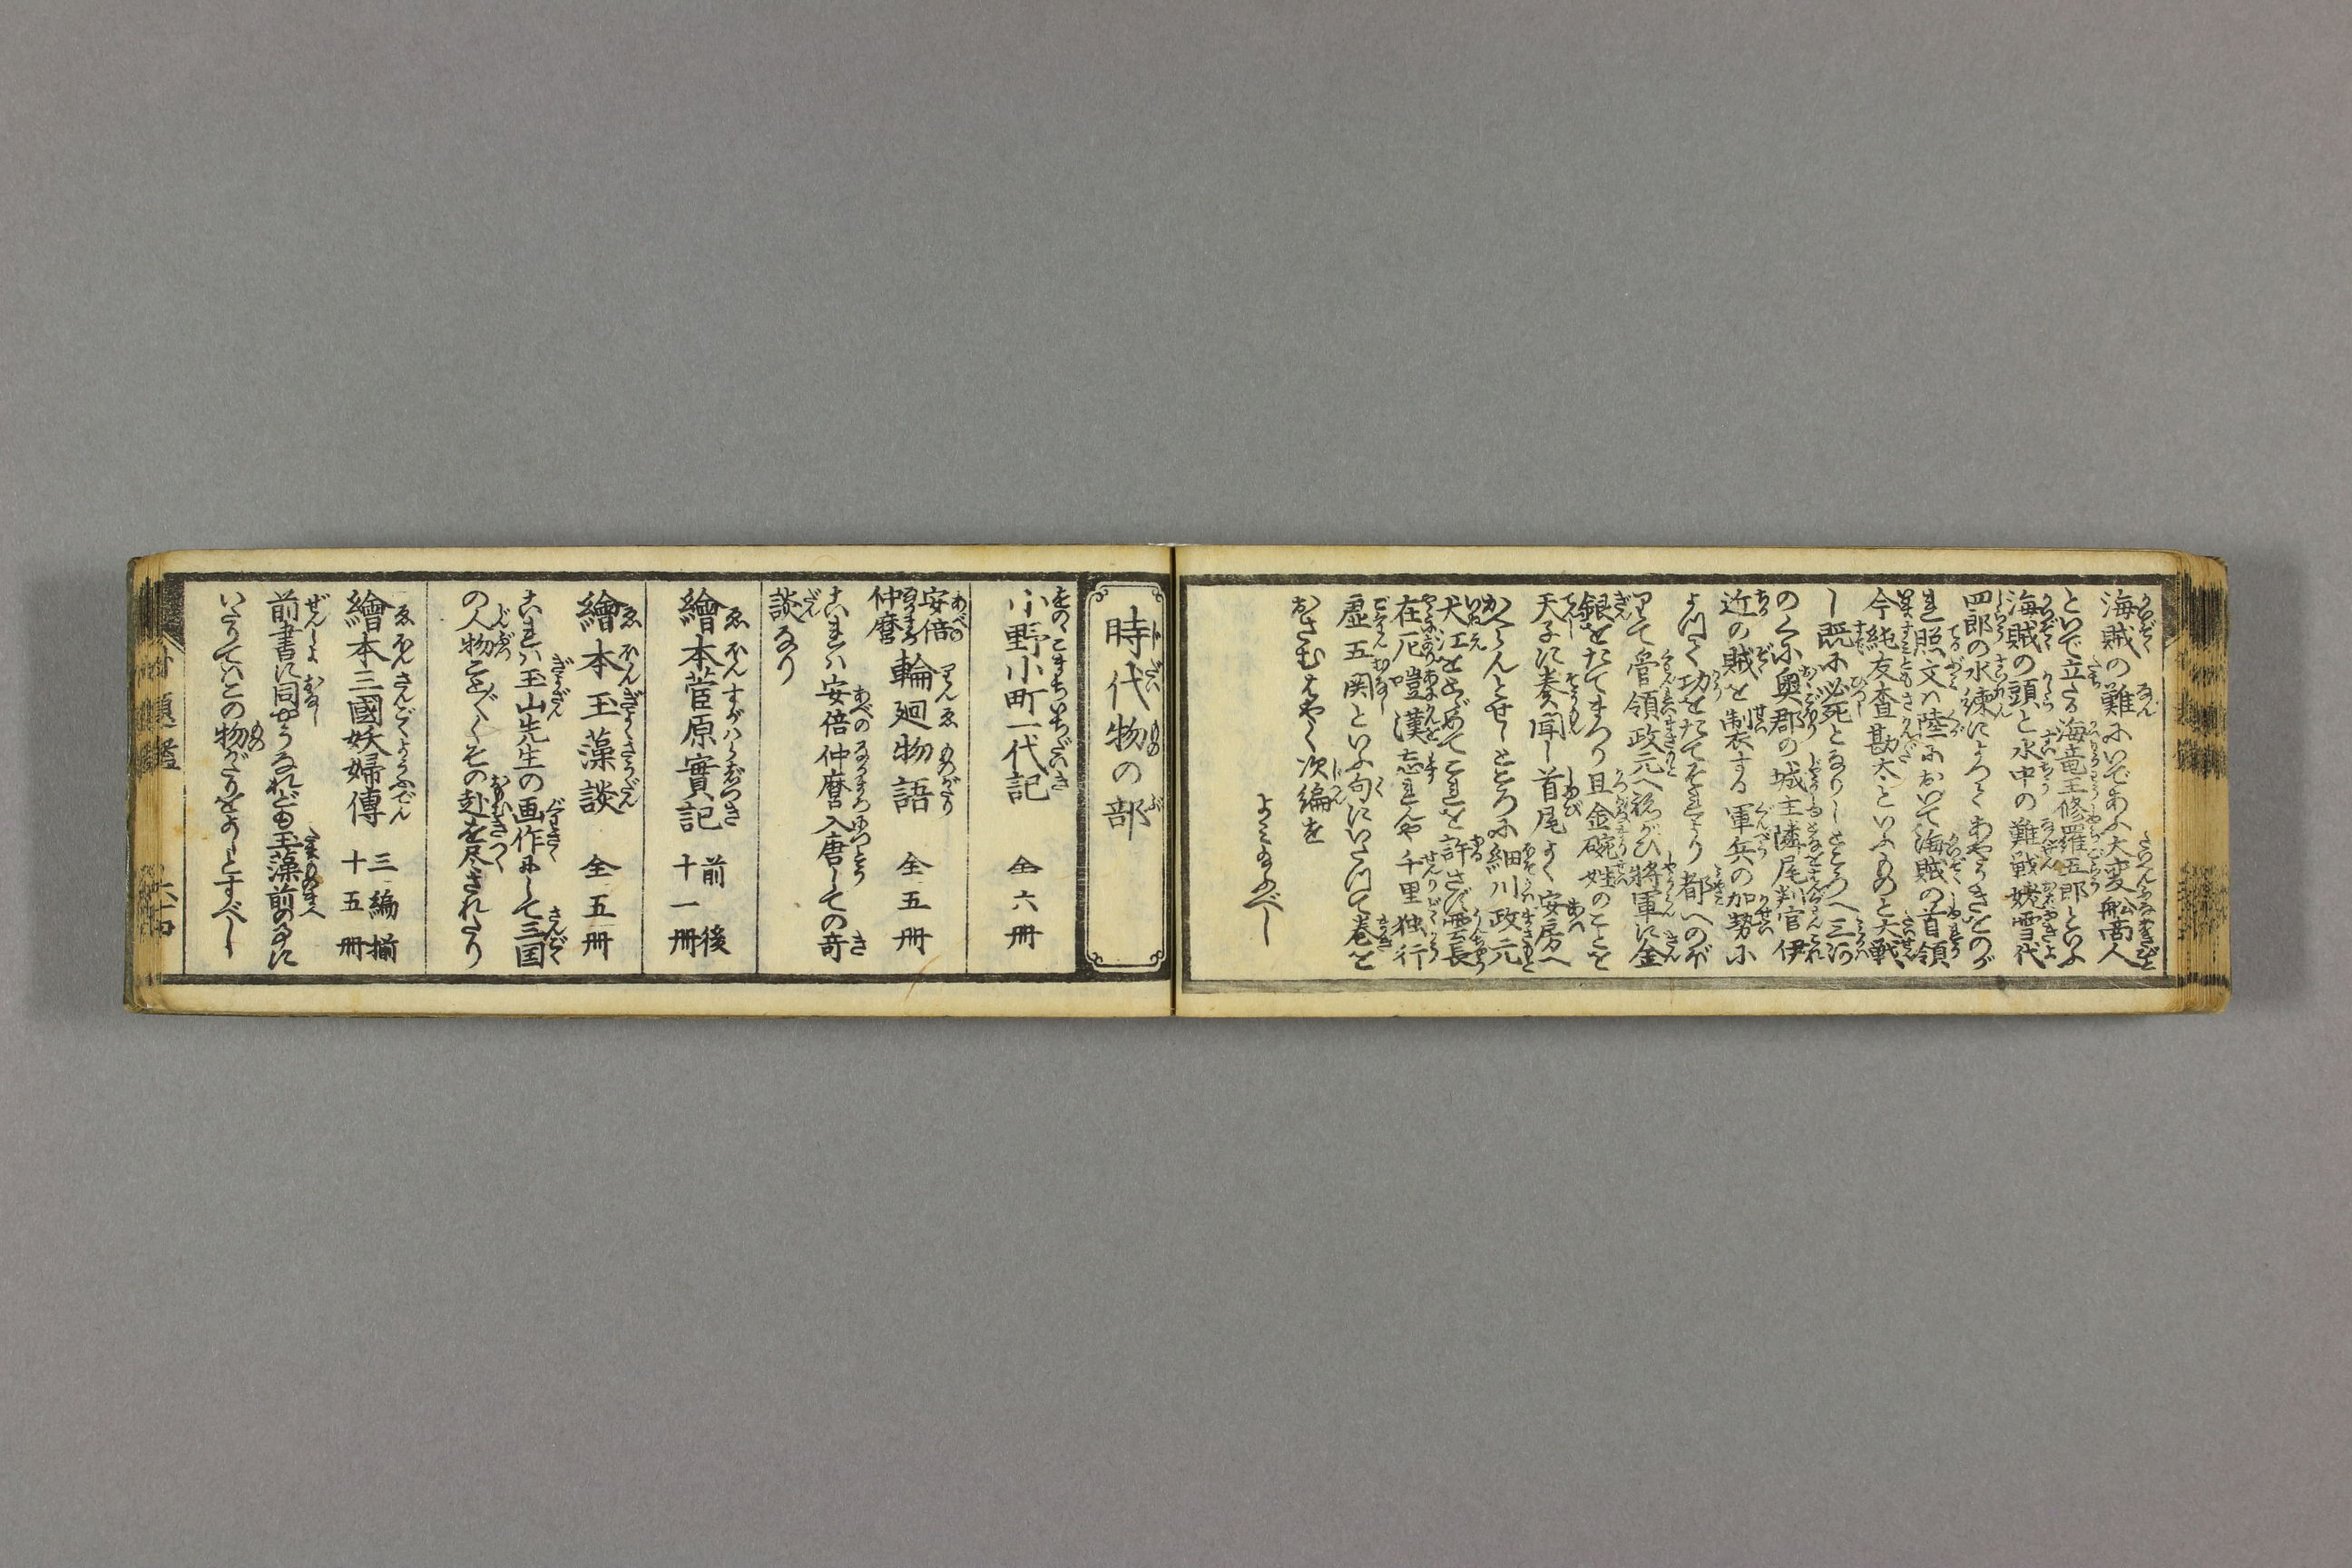 海賊の難にいであふ大変舩商人
といで立たる海竜王修羅五郎といふ
海賊の頭と水中の難戦姥雪代
四郎の水練によつてあやうきをのが
れ照文ハ陸において海賊の首領
今純友査勘太といふものと大戦
し既に必死となりしところへ三河
のくに奥郡の城主隣尾判官伊
近の賊を制する軍兵の加勢に
よつて功をたてそれより都へのぼ
りて管領政元へ ねがひ将軍に金
銀をたてまつり且金碗姓のことを
天子に奏聞し首尾よく安房へ
かへらんとせしところに細川政元
犬江をとゞめてこれを許さず雲長
在厄嘡漢志れんや千里独行
虚五関といふ句にいたつて巻を
おさむはやく次編を
よみ給ふべし
時代物の部
小野小町一代記 全六冊
安倍仲麿 輪廻物語 全五冊
これハ安倍仲麿入唐しての奇
談なり
繪本菅原實記 前後十一冊
繪本玉藻談 全五冊
これハ玉山先生の画作にして三国
の人物ことごとくその趣を尽されたり
繪本三國妖婦傳 三編揃十五冊
前書に同やうなれども玉藻前のるに
いたりてハこの物がたりをよしとすべし